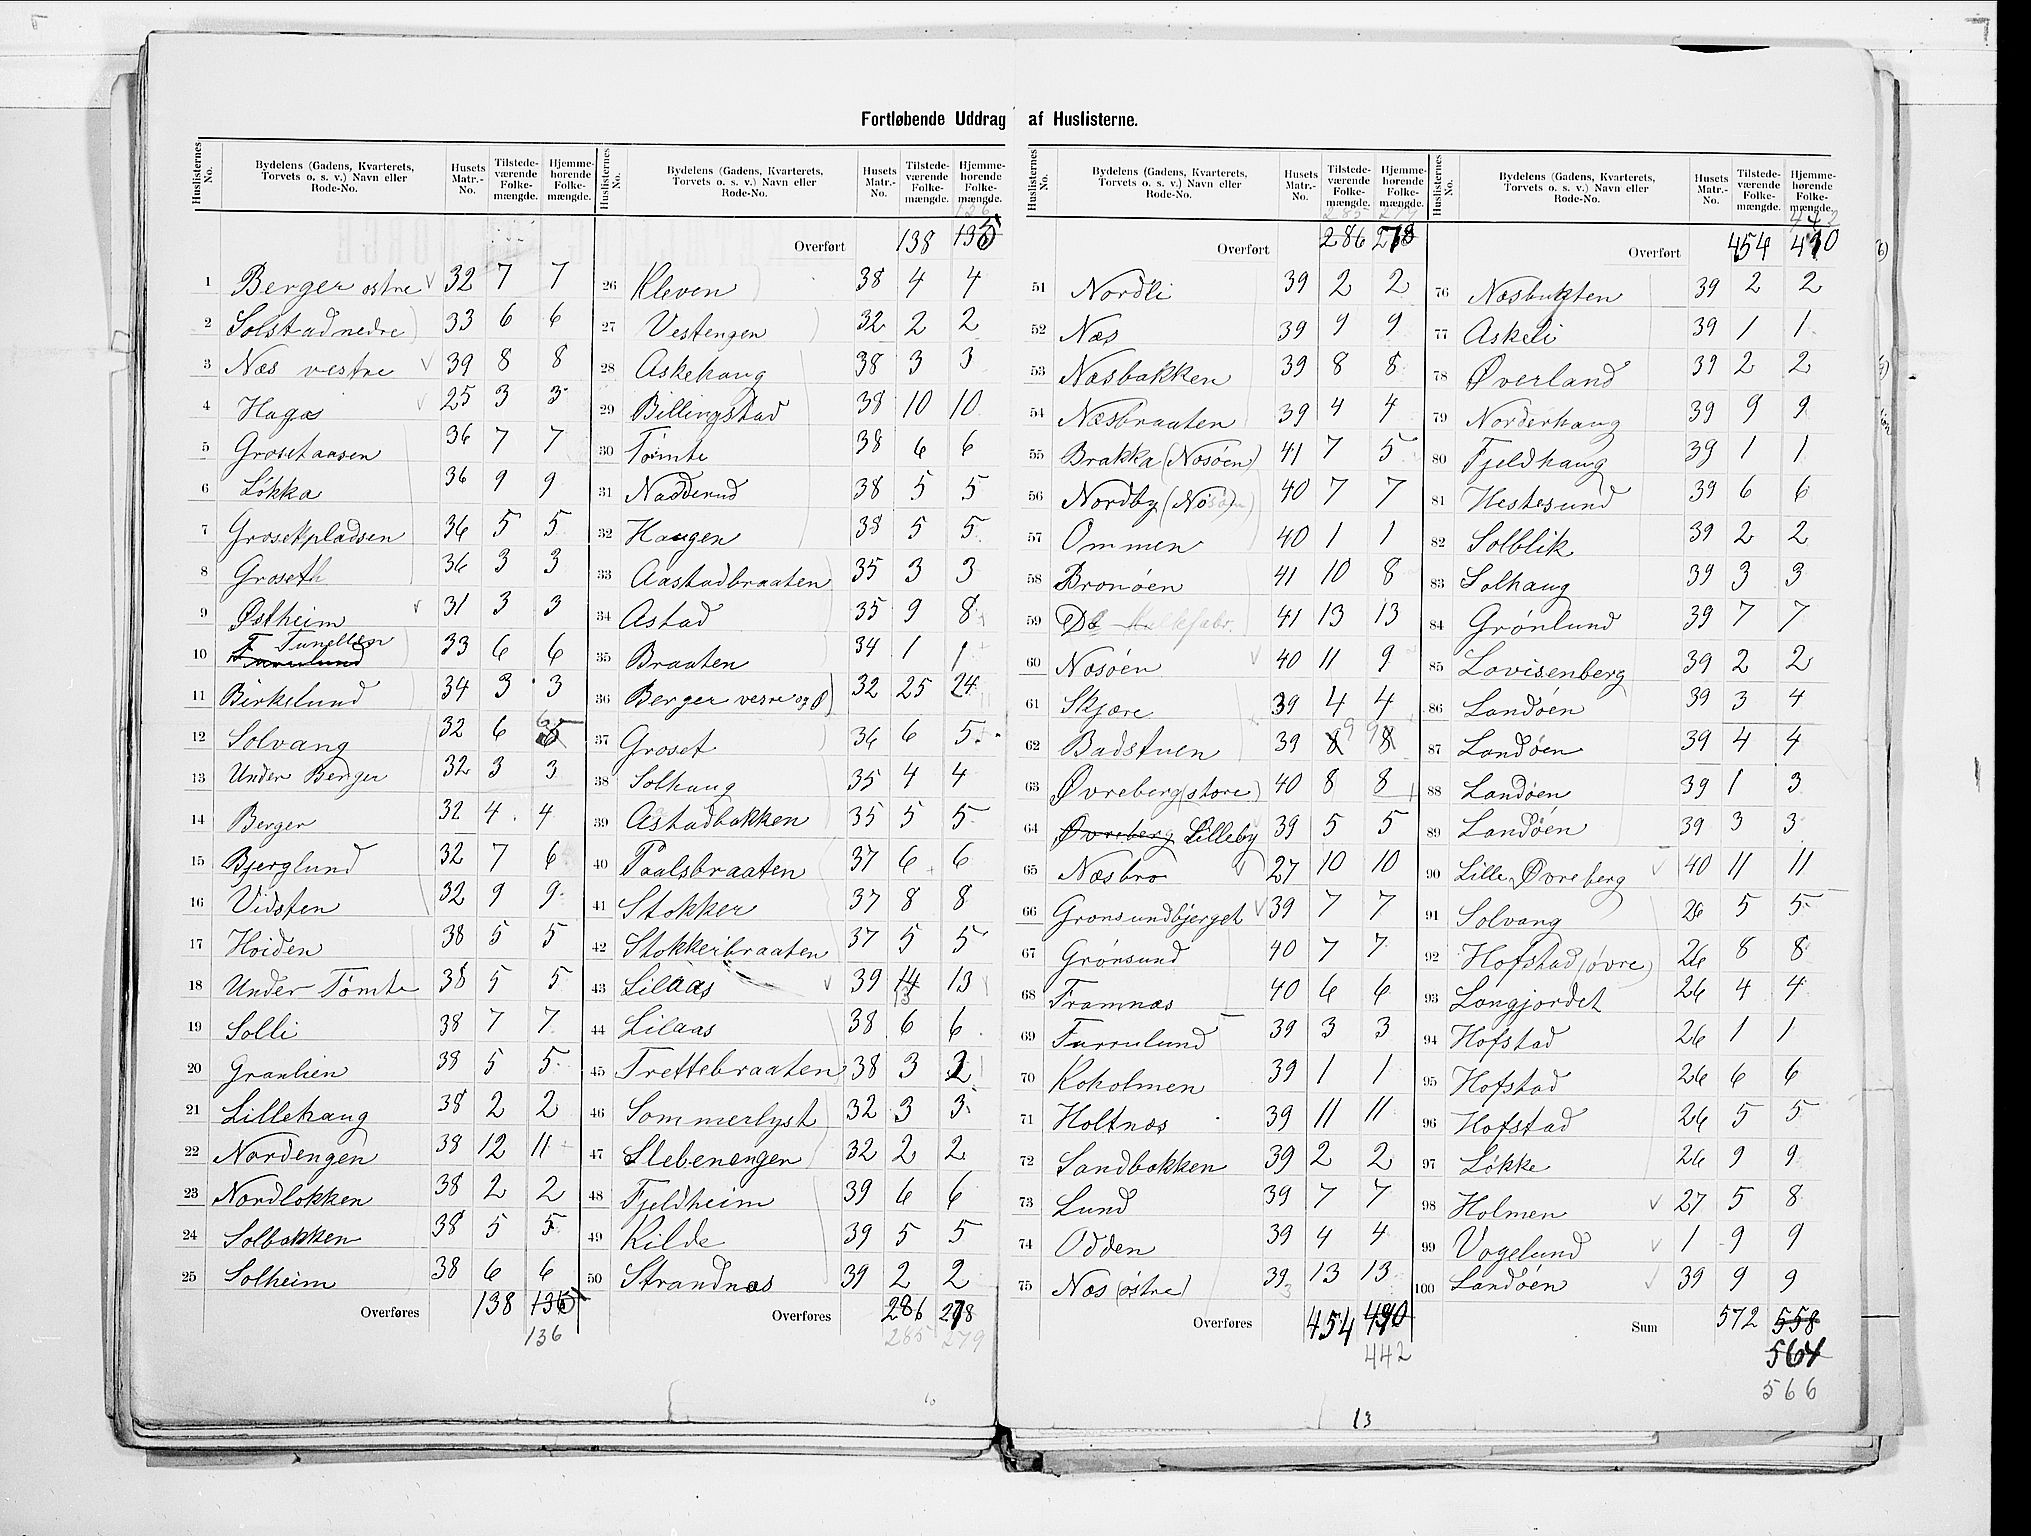 Fortløbende Uddrag af Huslisterne.
Huslisternes No. | Bydelens (Gadens, Kvarterets, Torvets o. s. v.) Navn eller Rode-No. | Husets Matr.-No. | Tilstede-værende Folke-mængde. | Hjemme-hørende Folke-mængde.
1 Berger østre 32 7 7
2 Solstad nedre 33 6 6
3 Næs vestre 39 8 8
4 Haga 25 3 3
5 Grosetaasen 36 7 7
6 Løkka 36 9 9
7 Grosetpladsen 36 5 5
8 Groseth 36 3 3
9 Østheim 31 3 3
10 Furulund Tunellen 33 6 6
11 Birkelund 34 3 3
12 Solvang 32 6 5 6
13 Under Berger 32 3 3
14 Berger 32 4 4
15 Bjerglund 32 7 6
16 Vidsten 32 9 9
17 Hoiden 38 5 5
18 Under Tømte 38 5 5
19 Solli 38 7 7
20 Granlien 38 5 5
21 Lillehaug 38 2 2
22 Nordengen 38 12 11
23 Nordløkken 38 2 2
24 Solbakken 38 5 5
25 Solheim 38 6 6
Overføres 138 135
136
Huslisternes No. | Bydelens (Gadens, Kvarterets, Torvets o. s. v.) Navn eller Rode-No. | Husets Matr.-No. | Tilstede-værende Folke-mængde. | Hjemme-hørende Folke-mængde.
Overført 138 135
26 Kleven 38 4 4
27 Vestengen 32 2 2
28 Askehaug 38 3 3
29 Billingstad 38 10 10
30 Tømte 38 6 6
31 Nadderud 38 5 5
32 Haugen 38 5 5
33 Aastadbraaten 35 3 3
34 Astad 35 9 8
35 Braaten 34 1 1
36 Berger vesre og Ø 32 25 24
37 Groset 36 6 5
38 Solhaug 35 4 4
39 Astadbakken 35 5 5
40 Paalsbraaten 37 6 6
41 Stokker 37 8 8
42 Stokkerbraaten 37 5 5
43 Lilaas 39 14 13 13
44 Lilaas 38 6 6
45 Trettebraaten 38 3 2
46 Sommerlyst 32 3 3
47 Slebenengen 32 2 2
48 Fjeldheim 39 6 6
49 Kilde 39 5 5
50 Strandnæs 39 2 2
Overføres 286 278
285 279
Huslisternes No. | Bydelens (Gadens, Kvarterets, Torvets o. s. v.) Navn eller Rode-No. | Husets Matr.-No. | Tilstede-værende Folke-mængde. | Hjemme-hørende Folke-mængde.
285 279
Overført 286 278
51 Nordli 39 2 2
52 Næs 39 9 9
53 Næsbakken 39 8 8
54 Næsbraaten 39 4 4
55 Brakka (Nosöen) 41 7 5
56 Nordby (Nosöen) 40 7 7
57 Ommen 40 1 1
58 Bronöen 41 10 8
59 Do 41 13 13
60 Nosöen 40 11 9
61 Skjære 39 4 4
62 Badstuen 39 8 9 8 9
63 Øvreberg (store) 40 8 8
64 Øvreberg Lilleby 39 5 5
65 Næsbro 27 10 10
66 Gronsundbjerget 39 7 7
67 Grønsund 40 7 7
68 Framnæs 40 6 6
69 Furrulund 39 3 3
70 Koholmen 39 1 1
71 Holtnæs 39 11 11
72 Sandbakken 39 2 2
73 Lund 39 7 7
74 Odden 39 4 4
75 Næs (østre) 39 13 13
Overføres 454 440
442
Huslisternes No. | Bydelens (Gadens, Kvarterets, Torvets o. s. v.) Navn eller Rode-No. | Husets Matr.-No. | Tilstede-værende Folke-mængde. | Hjemme-hørende Folke-mængde.
442
Overført 454 440
76 Næsbugten 39 2 2
77 Askeli 39 1 1
78 Øverland 39 2 2
79 Norderhaug 39 9 9
80 Fjeldhaug 39 1 1
81 Hestesund 39 6 6
82 Solblik 39 2 2
83 Solhaug 39 3 3
84 Grønlund 39 7 7
85 Lovisenberg 39 2 2
86 Landöen 39 3 4
87 Landöen 39 4 4
88 Landöen 39 1 3
89 Landöen 39 3 3
90 Lille Øvreberg 40 11 11
91 Solvang 26 5 5
92 Hofstad (øvre) 26 8 8
93 Langjordet 26 4 4
94 Hofstad 26 1 1
95 Hofstad 26 6 6
96 Hofstad 26 5 5
97 Løkke 26 9 9
98 Holmen 27 5 8
99 Vogelund 1 9 9
100 Landöen 39 9 9
Sum 572 558
564
566
13